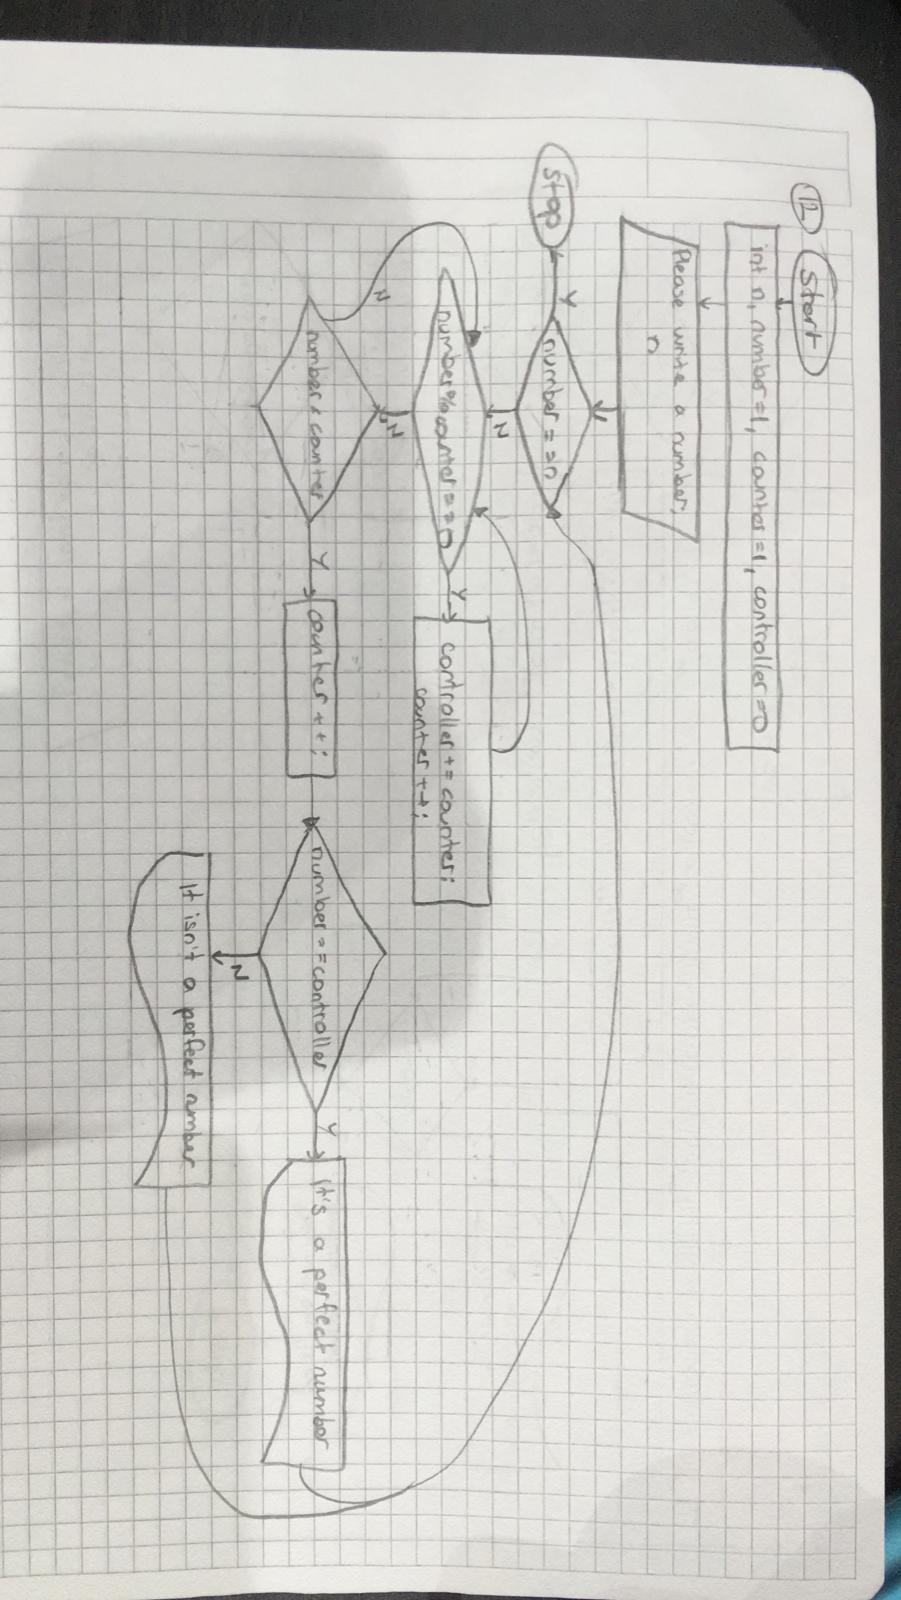 12
Start
int n, number=1, counter=1, controller=0
Please write a number,
n
number==n
Y
Stop
N
number%counter==0
Y
controller += counter;
counter ++;
N
number<counter
N
Y
counter ++;
number==controller
Y
It's a perfect number
N
It isn't a perfect number